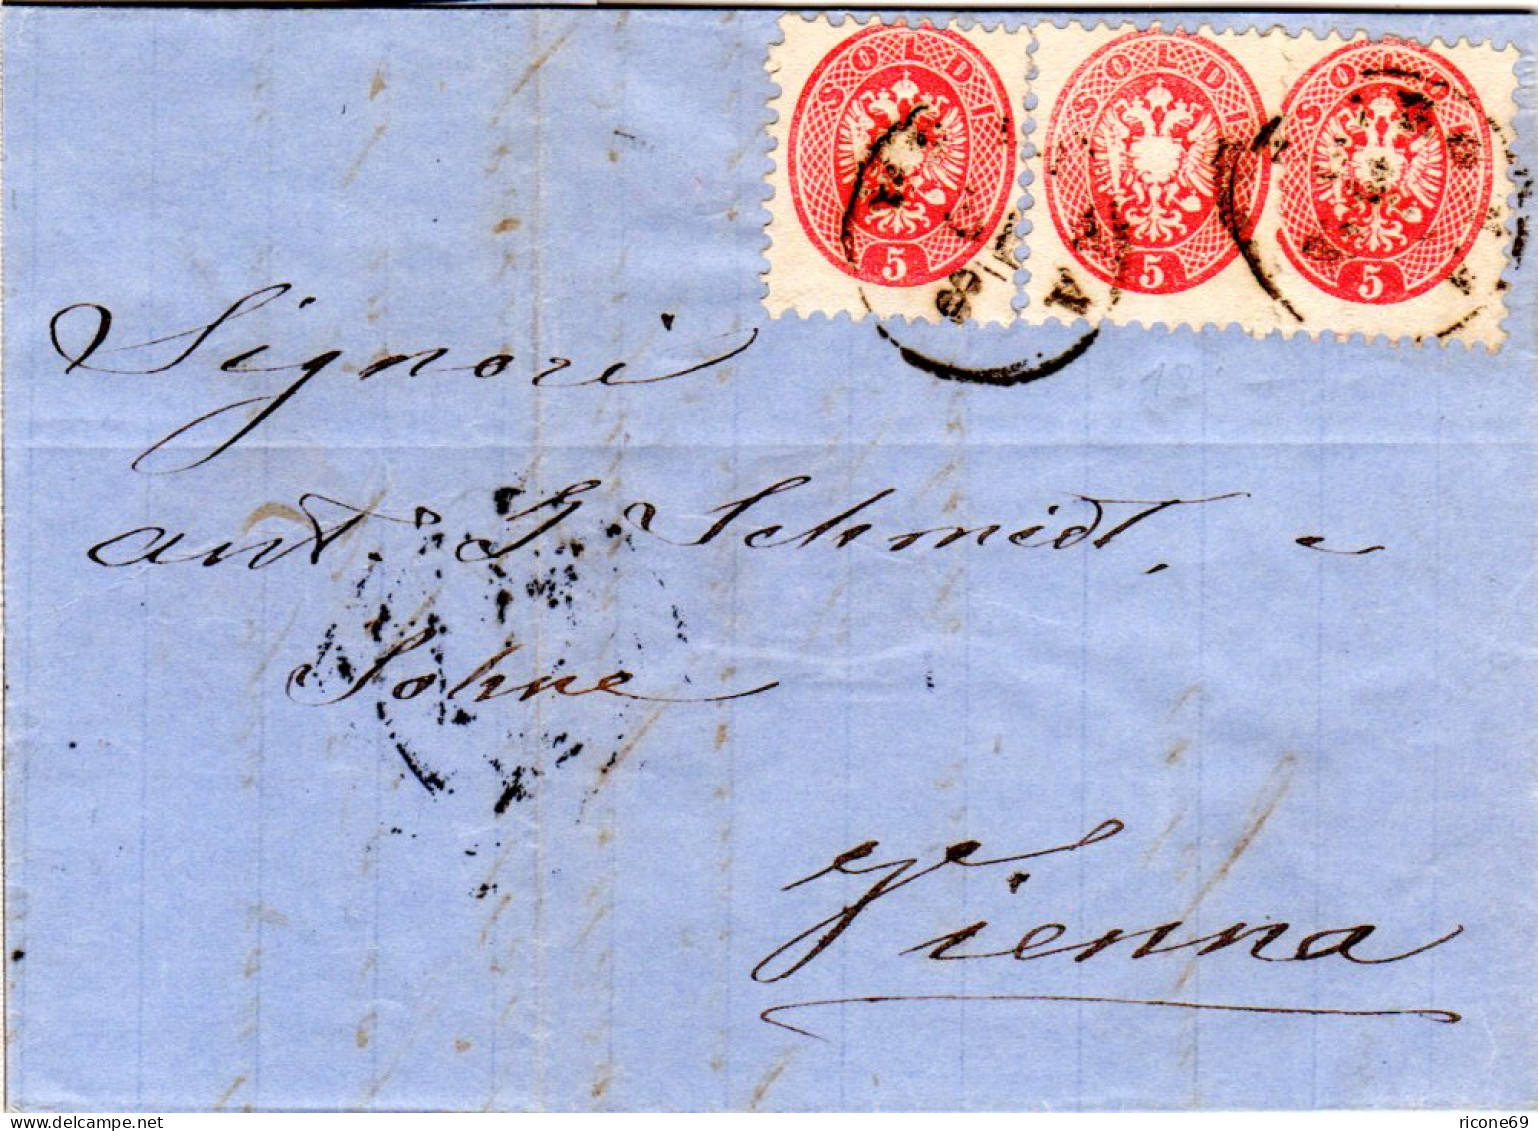 SOLDI SOLDI SOLDI
5 5 5
Signori
ant G Schmidt, e
Söhne
Vienna
delcampe.net
ricone69